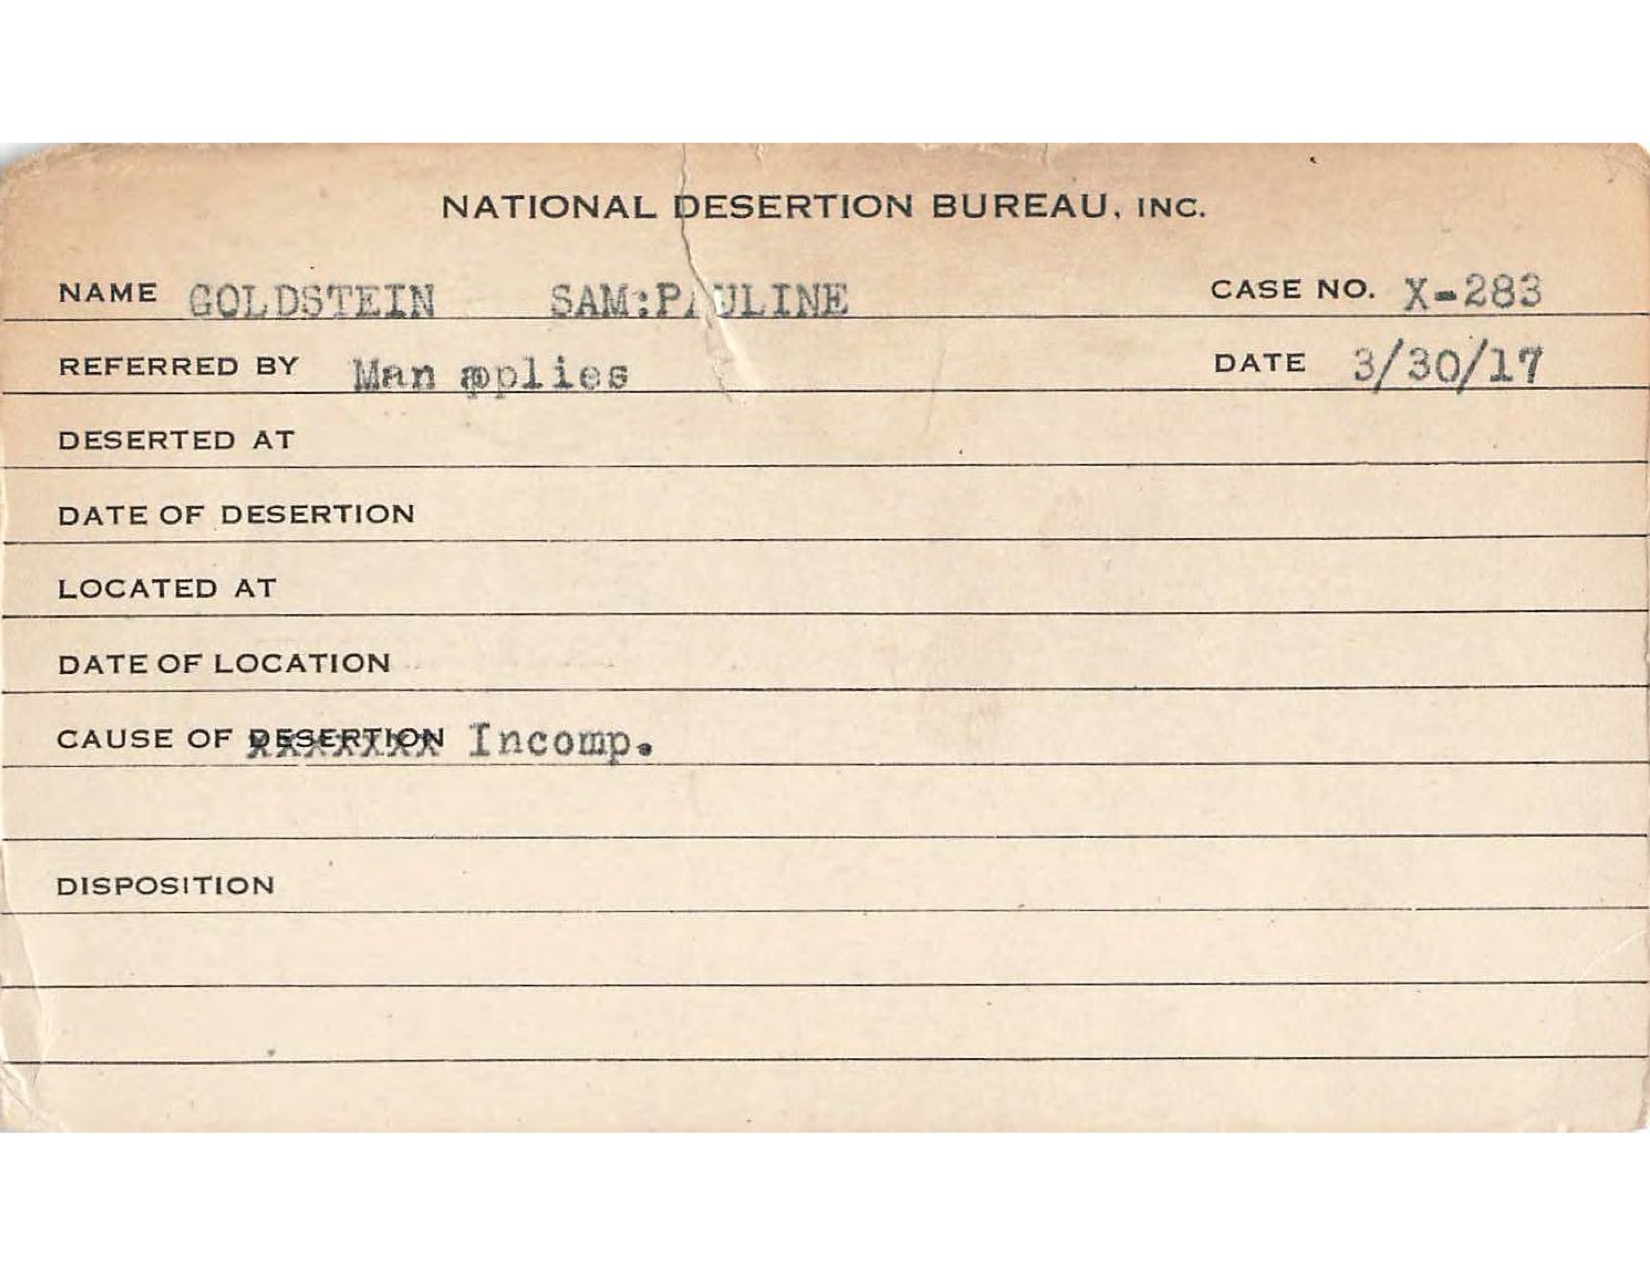 NATIONAL DESERTION BUREAU, INC.
NAME GOLDSTEIN SAM:PAULINE CASE NO. X-283
REFERRED BY Man applies DATE 3/30/17
DESERTED AT
DATE OF DESERTION
LOCATED AT
DATE OF LOCATION
CAUSE OF DESERTION Incomp.
DISPOSITION